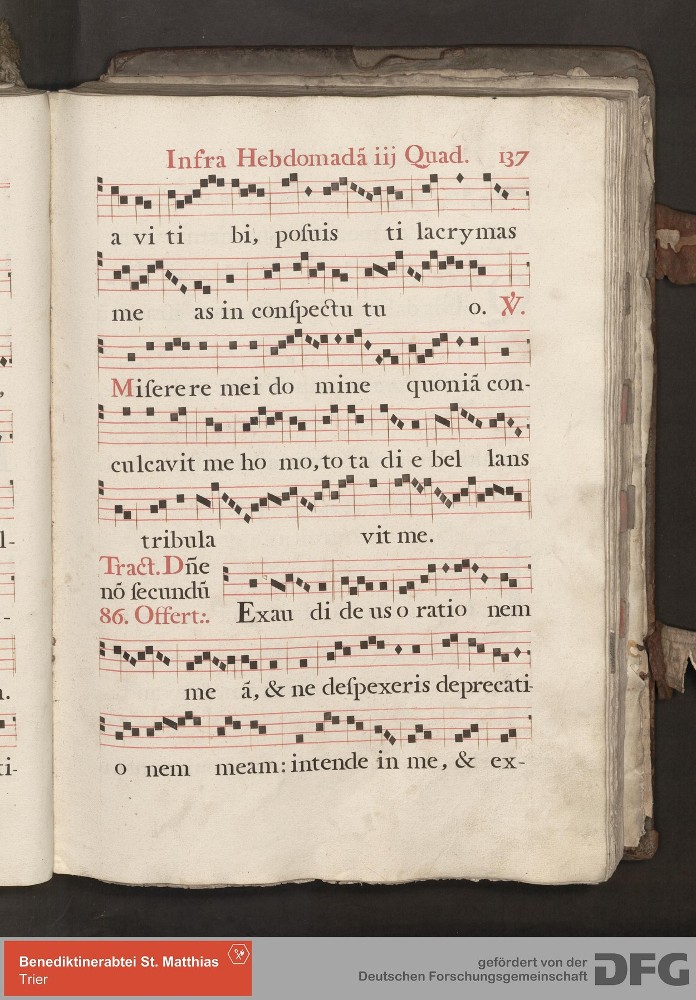 Infra Hebdomadã iij Quad. 137
a vi ti bi, poſuis ti lacrymas
me as in conſpectu tu o. ℣.
Miſerere mei do mine quoniã con-
culcavit me ho mo, to ta di e bel lans
tribula vit me.
Tract. Dñe
nõ ſecundũ
86. Offert:. Exau di de us o ratio nem
me ã, & ne deſpexeris deprecati-
o nem meam: intende in me, & ex-
l-
-
ti-
Benediktinerabtei St. Matthias
Trier
gefördert von der
Deutschen Forschungsgemeinschaft
DFG